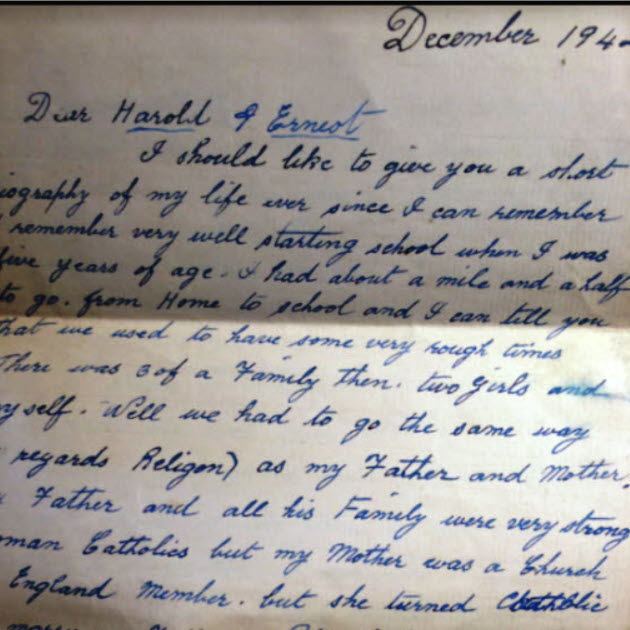 December 194
Dear Harold & Ernest
I should like to give you a short
iography of my life ever since I can remember
remember very well starting school when I was
five years of age. I had about a mile and a half
to go. from Home to school and I can tell you
that we used to have some very rough times
There was 3 of a Family then. two Girls and
my self. Well we had to go the same way
regards Religon) as my Father and Mother.
Father and all his Family were very strong
oman Catholics but my Mother was a Church
England Member. but she turned Catholic